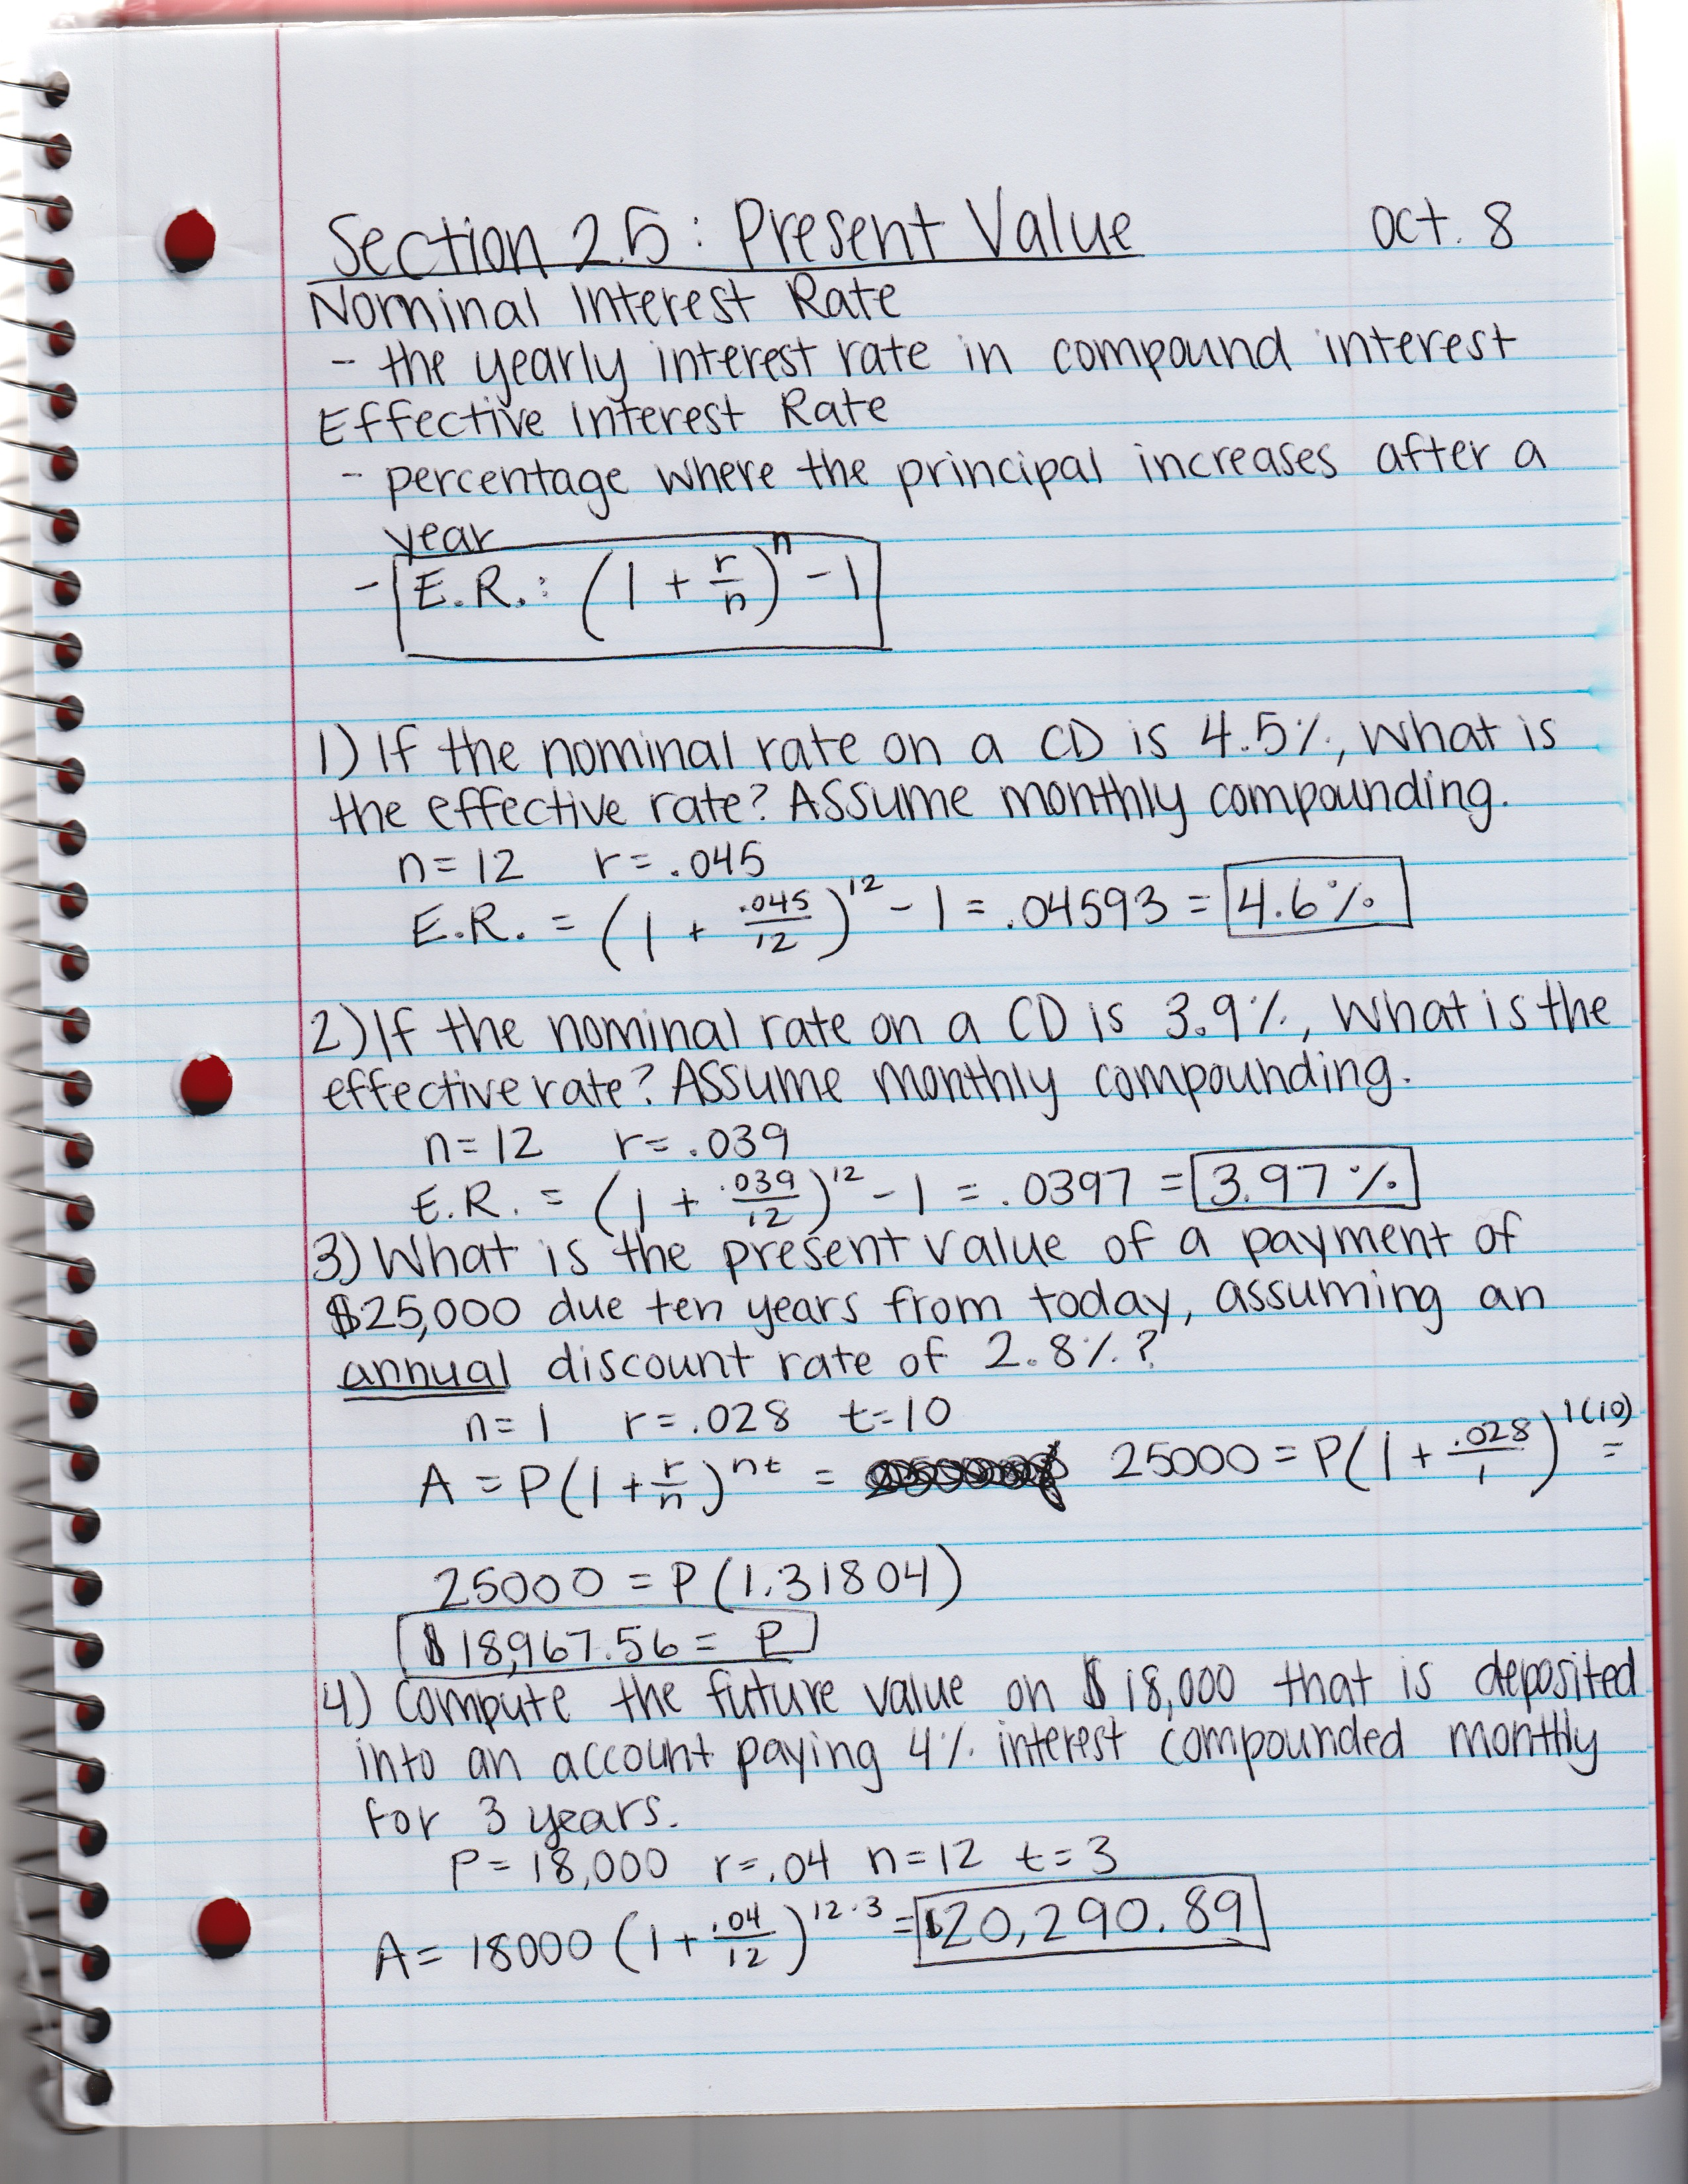 Section 2.5: Present Value oct. 8
Nominal Interest Rate
- the yearly interest rate in compound interest
Effective Interest Rate
- percentage where the principal increases after a
year
- E.R.: (1 + r/n)^n - 1
1) If the nominal rate on a CD is 4.5%, what is
the effective rate? Assume monthly compounding.
n = 12 r = .045
E.R. = (1 + .045/12)^12 - 1 = .04593 = 4.6%
2) If the nominal rate on a CD is 3.9%, what is the
effective rate? Assume monthly compounding.
n = 12 r = .039
E.R. = (1 + .039/12)^12 - 1 = .0397 = 3.97%
3) What is the present value of a payment of
$25,000 due ten years from today, assuming an
annual discount rate of 2.8%?
n = 1 r = .028 t = 10
A = P(1 + r/n)^nt = 25000 = P(1 + .028/1)^1(10) =
25000 = P(1.31804)
$18,967.56 = P
4) Compute the future value on $18,000 that is deposited
into an account paying 4% interest compounded monthly
for 3 years.
P = 18,000 r = .04 n = 12 t = 3
A = 18000 (1 + .04/12)^12·3 = $20,290.89